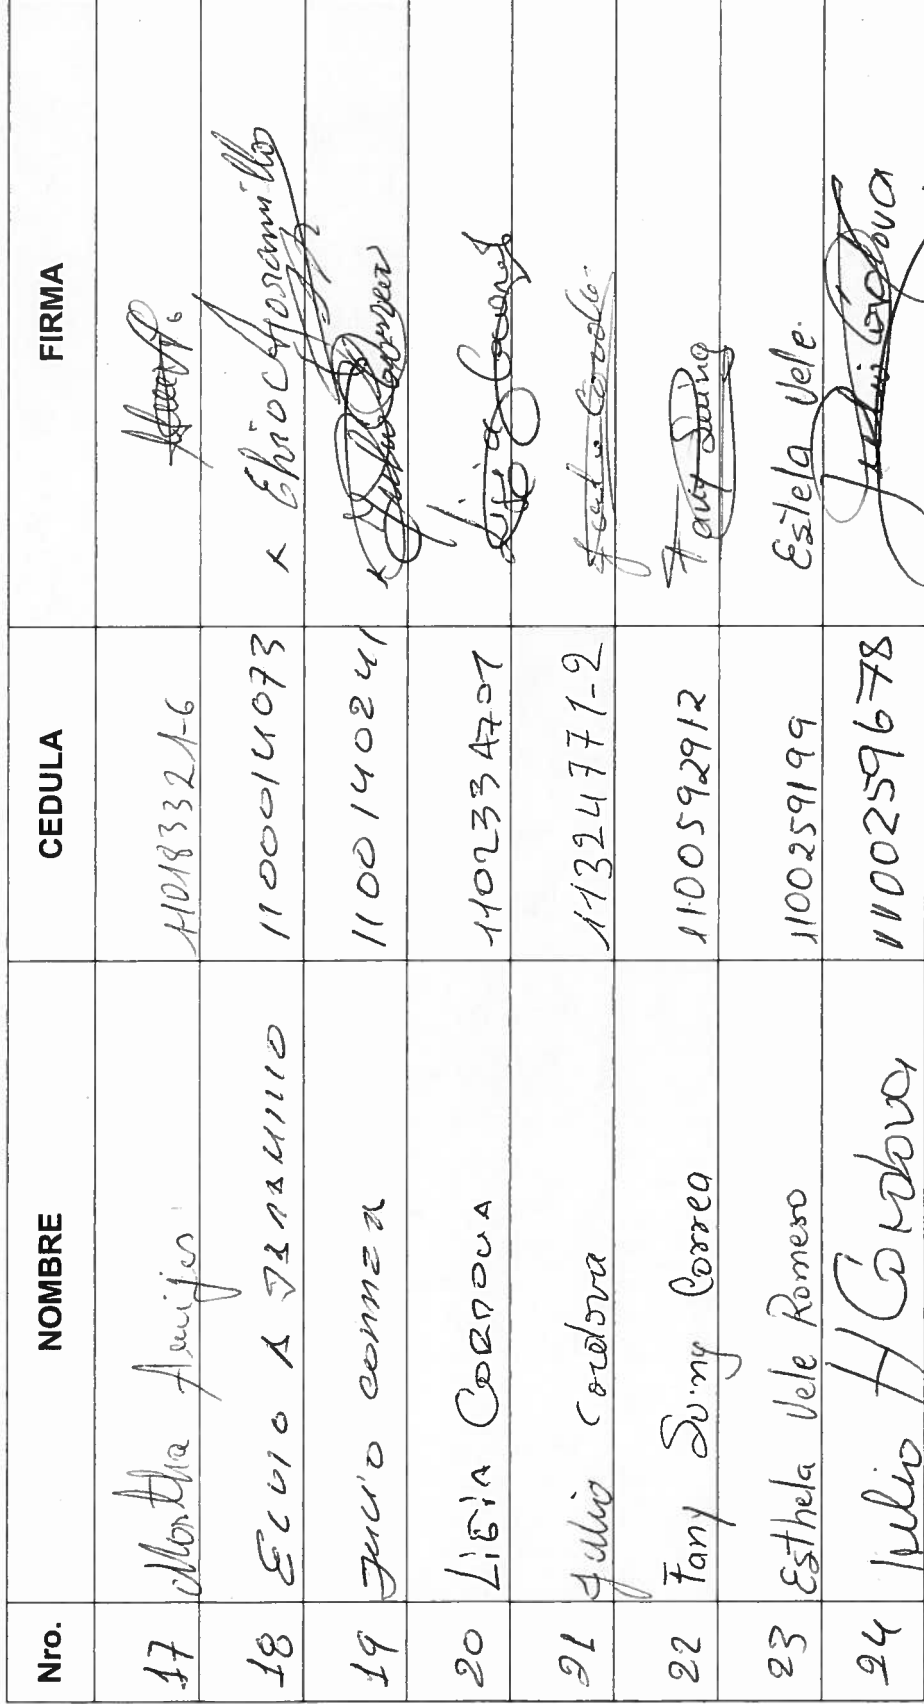 Nro. NOMBRE CEDULA FIRMA
17 Martha Armijos 110183321-6
18 Elvio A Jaramillo 1100014073 x Elvio A Jaramillo
19 Julio 1100140241 x
20 Ligia Cordova 1102334701 Ligia
21 Julio Cordova 11324771-2 Julio Cordova
22 Fany Suing Correa 1100592912 Fany Suing
23 Esthela Vele Romero 1100259199 Estela Vele.
24 Julio H Cordova 1100259678 Julio Cordova